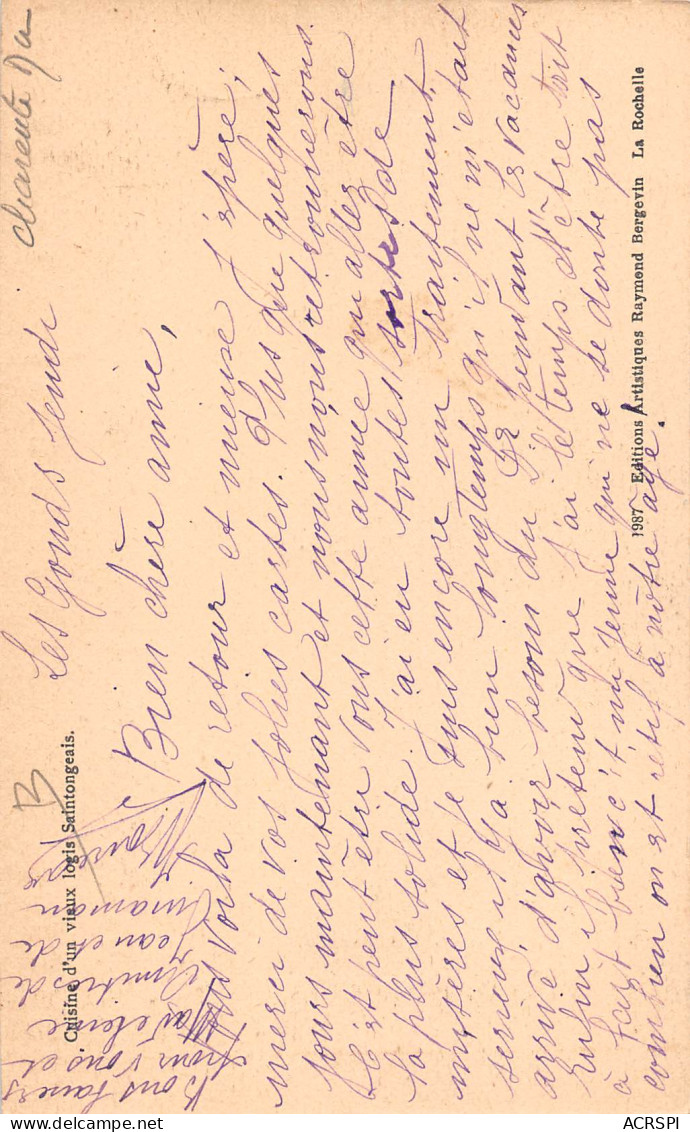 Charente
Les Gonds Jeudi
Bien chère amie,
Vous voilà de retour et mieux j'espère;
merci de vos jolies cartes. Plus que quelques
jours maintenant et nous nous retrouverons
C'est peut être vous cette année qui allez être
la plus solide. J'ai eu toutes sortes de
misères et je suis encore un traitement
serieux il y a bien longtemps qu'il ne m'était
arrivé d'avoir besoin du Dr pendant les vacances
Enfin il prétend que j'ai le temps d'être
à faire bien c'est un jeune qui ne se doute pas
combien on est rétif à notre âge.
Bons baisers
pour vous et
Amitiés de
Jean et de
maman
B
Cuisine d'un vieux logis Saintongeais.
1987 Editions Artistiques Raymond Bergevin La Rochelle
ACRSPI